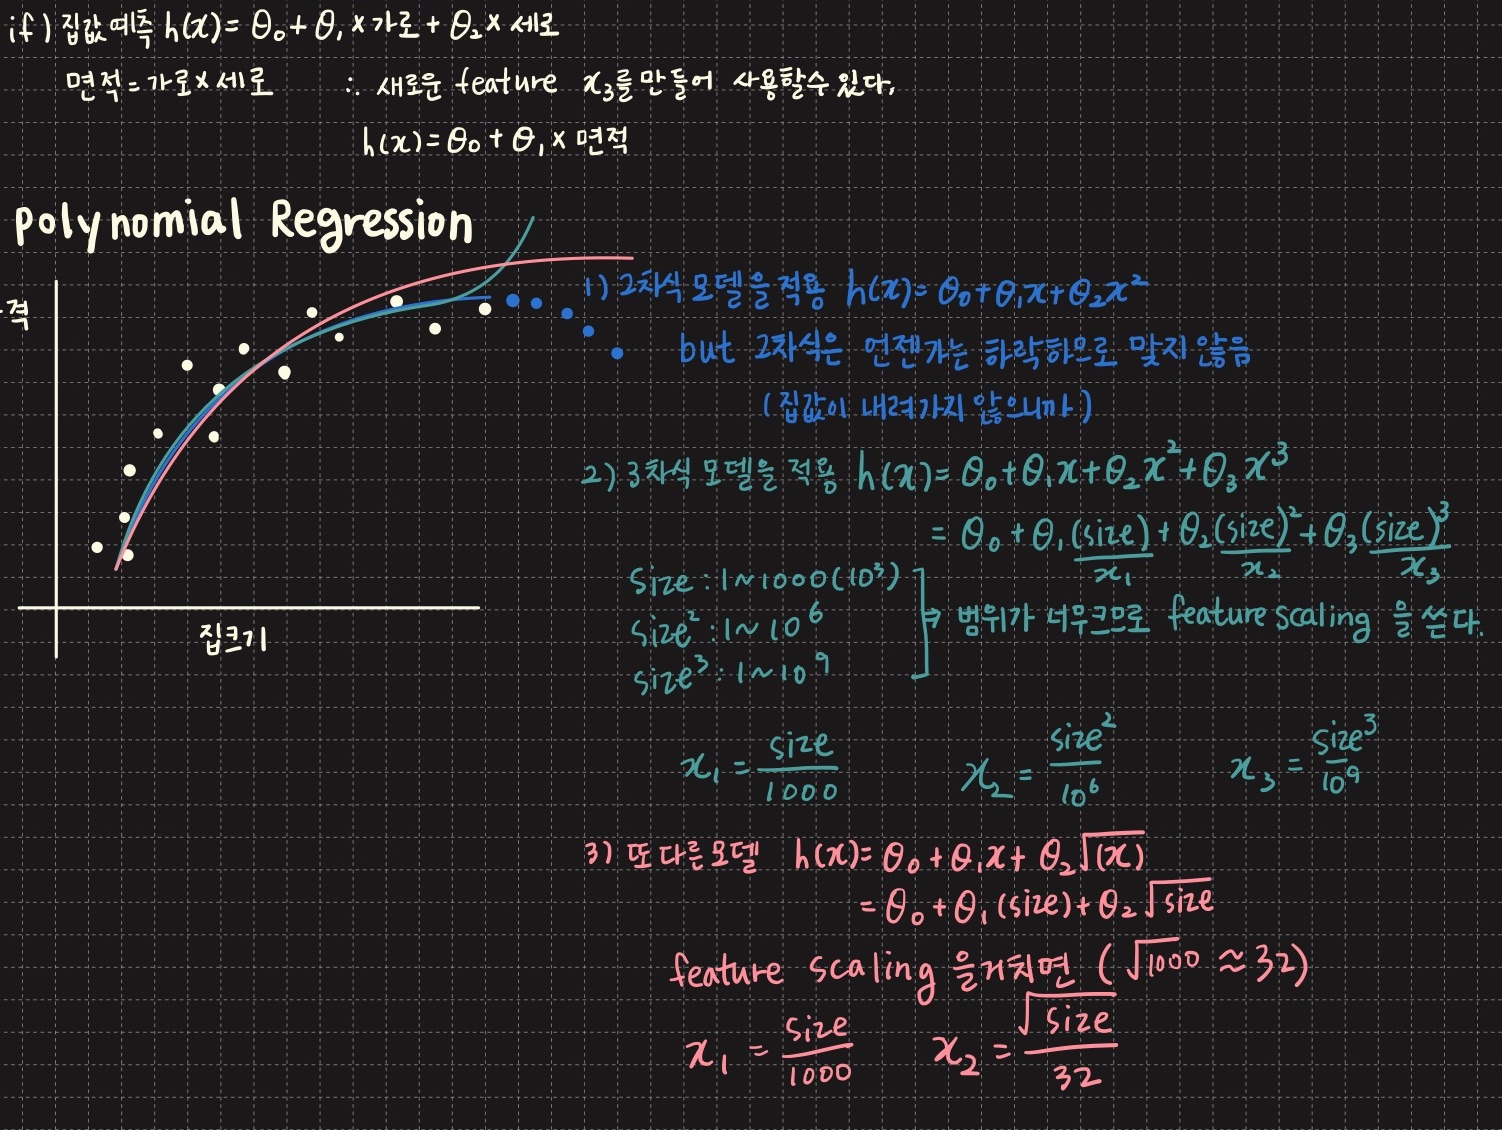 if) 집값예측 h(x) = θ₀ + θ₁ × 가로 + θ₂ × 세로
면적 = 가로 × 세로 ∴ 새로운 feature x₃를 만들어 사용할수 있다.
h(x) = θ₀ + θ₁ × 면적
Polynomial Regression
격
집크기
1) 2차식 모델을 적용 h(x) = θ₀ + θ₁x + θ₂x²
but 2차식은 언젠가는 하락하므로 맞지 않음
(집값이 내려가지 않으니까)
2) 3차식 모델을 적용 h(x) = θ₀ + θ₁x + θ₂x² + θ₃x³
= θ₀ + θ₁(size) + θ₂(size)² + θ₃(size)³
x₁ x₂ x₃
size : 1 ~ 1000 (10³)
size² : 1 ~ 10⁶
size³ : 1 ~ 10⁹
⇒ 범위가 너무크므로 feature scaling 을 쓴다.
x₁ = size/1000 x₂ = size²/10⁶ x₃ = size³/10⁹
3) 또 다른 모델 h(x) = θ₀ + θ₁x + θ₂√(x)
= θ₀ + θ₁(size) + θ₂√size
feature scaling 을거치면 (√1000 ≈ 32)
x₁ = size/1000 x₂ = √size/32